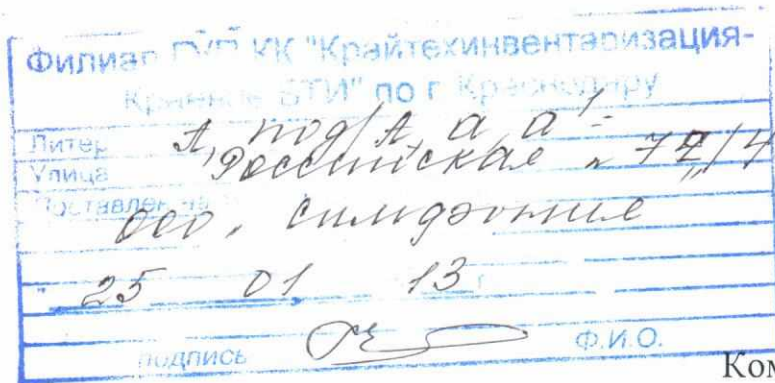 Филиал ГУП КК "Крайтехинвентаризация-
Краевое БТИ" по г. Краснодару
Литер А, под/А, а, а¹
Улица Российская №
Поставлен на
ООО. Симфония
" 25 01 13 г.
подпись Ф.И.О.
Ком